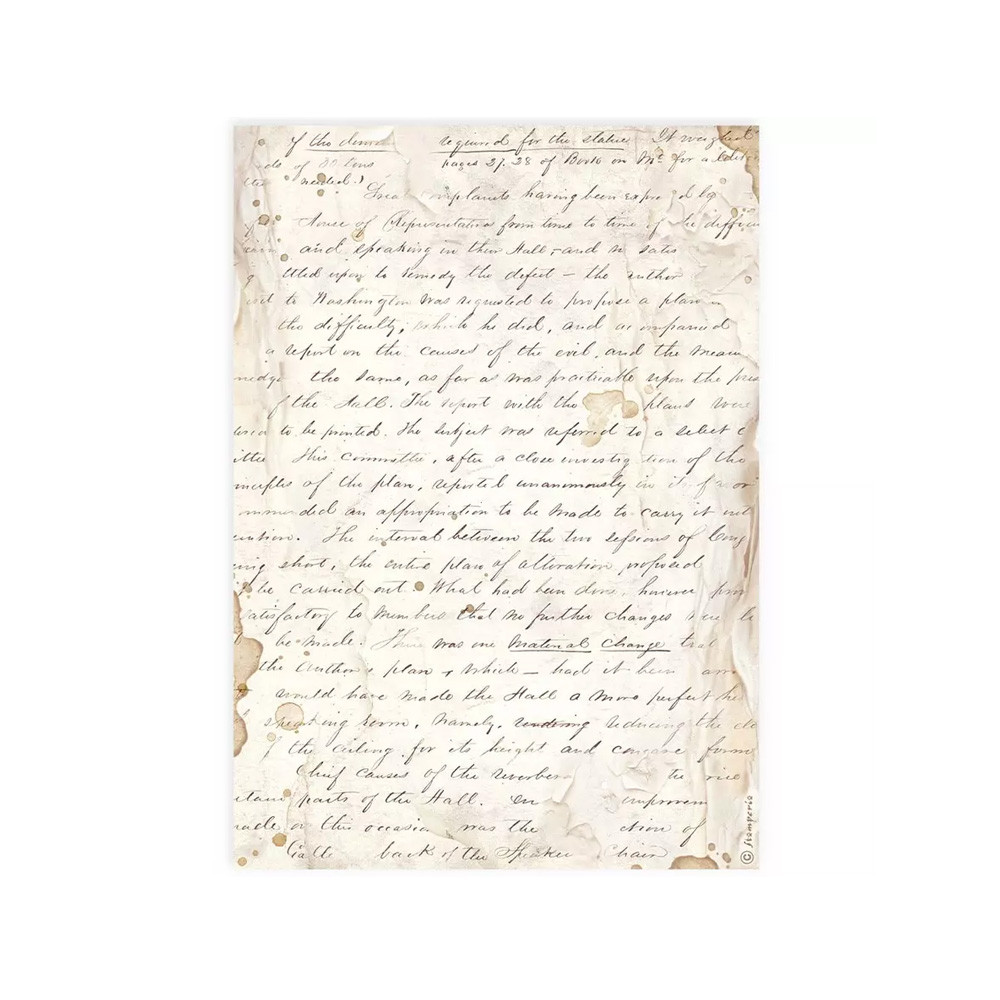 of the dome required for the statue It weighed
of 80 tons pages 27. 28 of Book on Mt. for a
needed.)
Great complaints having been expressed by
House of Representatives from time to time of the difficu
and speaking in their Hall, and no satis
upon to remedy the defect — the author
to Washington was requested to propose a plan
the difficulty; which he did, and accompanied
a report on the causes of the evil, and the mean
the same, as far as was practicable upon the
of the Hall. The report with the plans were
to be printed. The subject was referred to a select c
This committee, after a close investigation of the
of the plan, reported unanimously in its favor
ded an appropriation to be made to carry it
The interval between the two sessions of Cong
short, the entire plan of alteration proposed
be carried out. What had been done, however
satisfactory to members that no further changes were
be made. There was one material change
the author's plan, which — had it been
would have made the Hall a more perfect
speaking room, namely, rendering reducing the
of the ceiling for its height and concave form
Chief causes of the reverbera
parts of the Hall. improvem
made on this occasion was the ction of
back of the Speaker Chair
© Stamperia